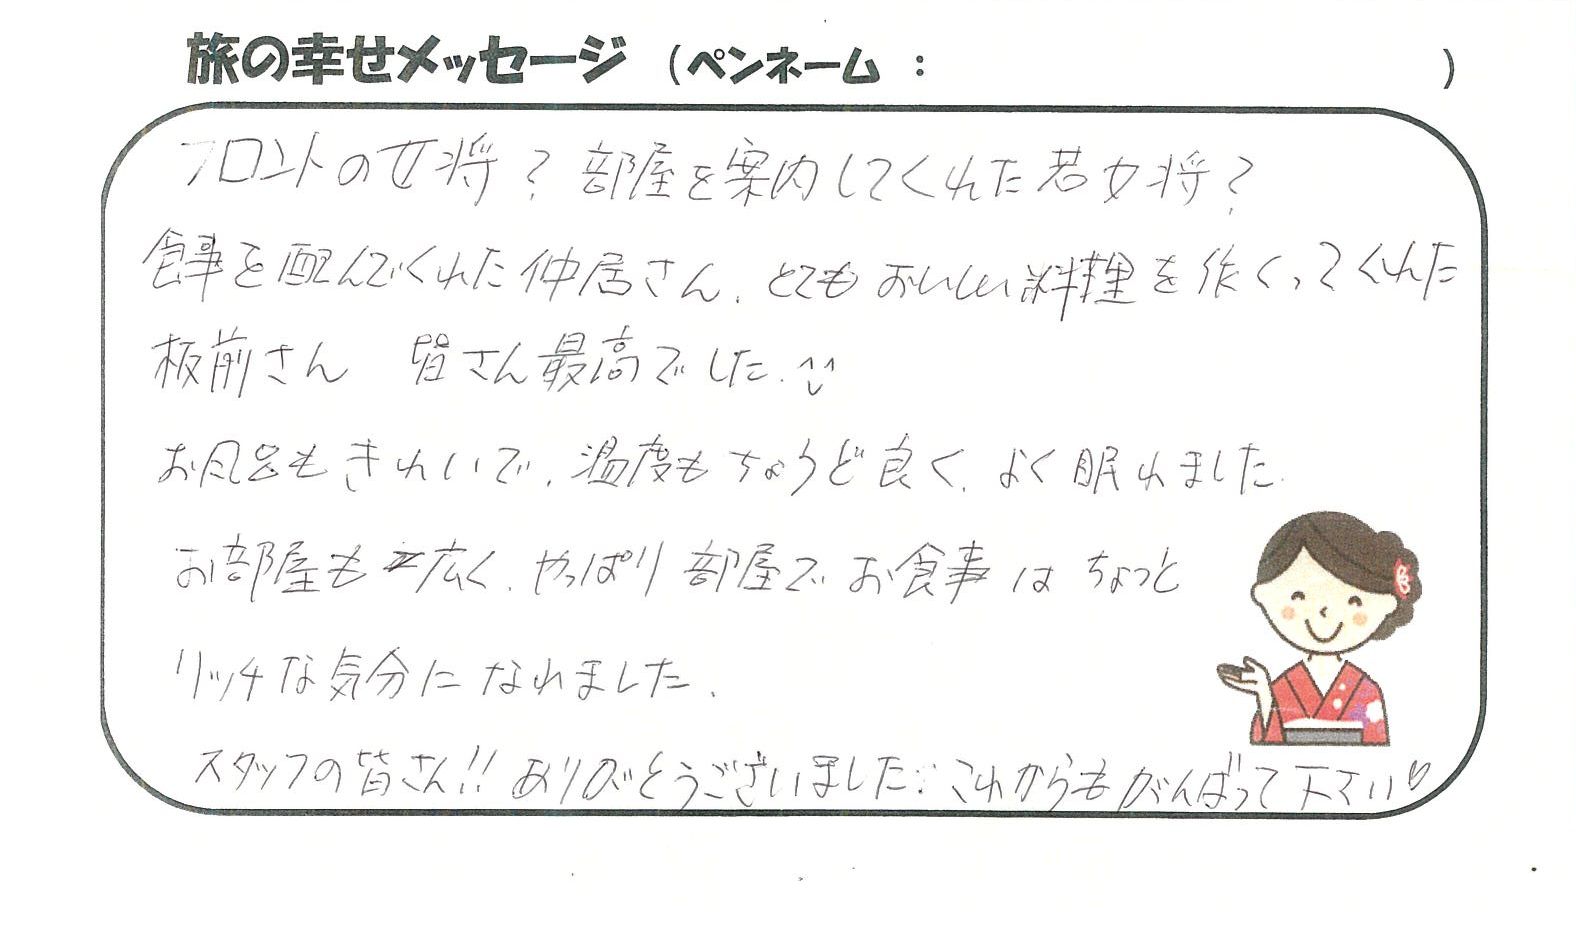 旅の幸せメッセージ （ペンネーム ： ）
フロントの女将？部屋を案内してくれた若女将？
食事を配んでくれた仲居さん、とてもおいしい料理を作くってくれた
板前さん 皆さん最高でした.
お風呂もきれいで、温度もちょうど良く、よく眠れました.
お部屋も広く、やっぱり部屋でお食事はちょっと
リッチな気分になれました.
スタッフの皆さん!!ありがとうございました.これからもがんばって下さい♡